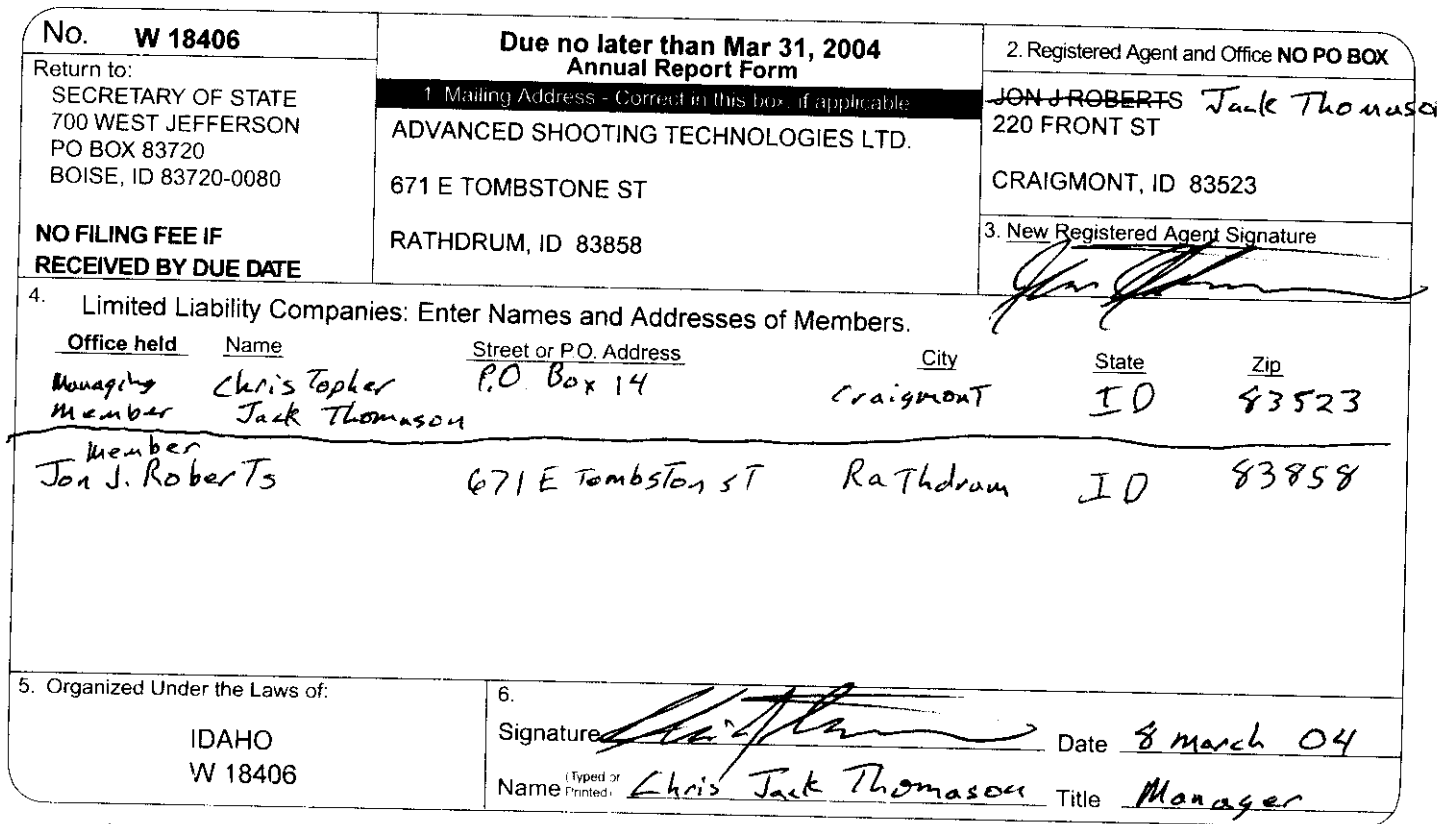 No. W 18406
Return to:
SECRETARY OF STATE
700 WEST JEFFERSON
PO BOX 83720
BOISE, ID 83720-0080
NO FILING FEE IF
RECEIVED BY DUE DATE
Due no later than Mar 31, 2004
Annual Report Form
1 Mailing Address - Correct in this box, if applicable
ADVANCED SHOOTING TECHNOLOGIES LTD.
671 E TOMBSTONE ST
RATHDRUM, ID 83858
2. Registered Agent and Office NO PO BOX
JON J ROBERTS Jack Thomason
220 FRONT ST
CRAIGMONT, ID 83523
3. New Registered Agent Signature
4. Limited Liability Companies: Enter Names and Addresses of Members.
Office held Name Street or P.O. Address City State Zip
Managing Christopher P.O. Box 14 Craigmont ID 83523
Member Jack Thomason
Member
Jon J. Roberts 671 E Tombston sT Rathdrum ID 83858
5. Organized Under the Laws of:
IDAHO
W 18406
6.
Signature Date 8 march 04
Name (Typed or Printed) Chris Jack Thomason Title Manager